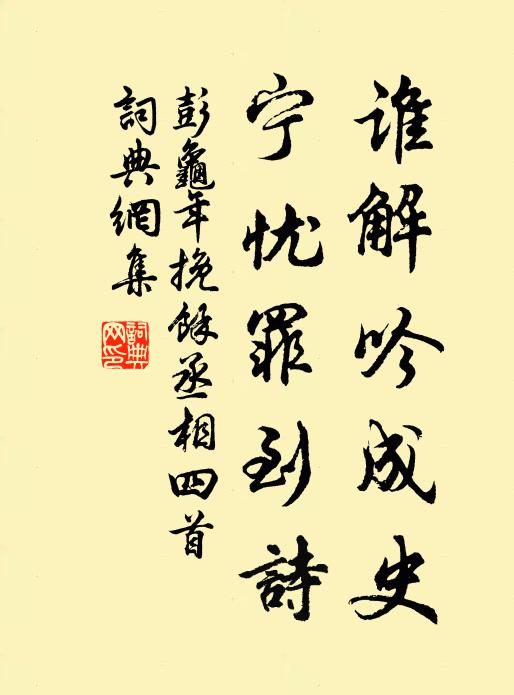 谁解吟成史
宁忧罪到詩
彭龜年挽馀丞相四首
詞典網集
詞典
网印